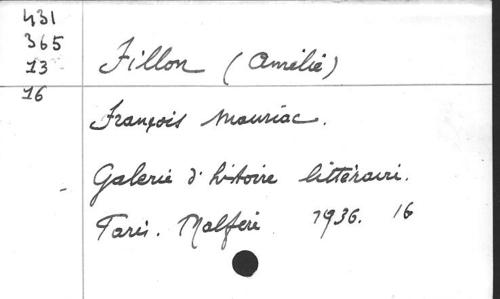 431
365
13
16
Fillon (Amélie)
François Mauriac.
Galerie d'histoire littéraire.
Paris. Malfère 1936. 16